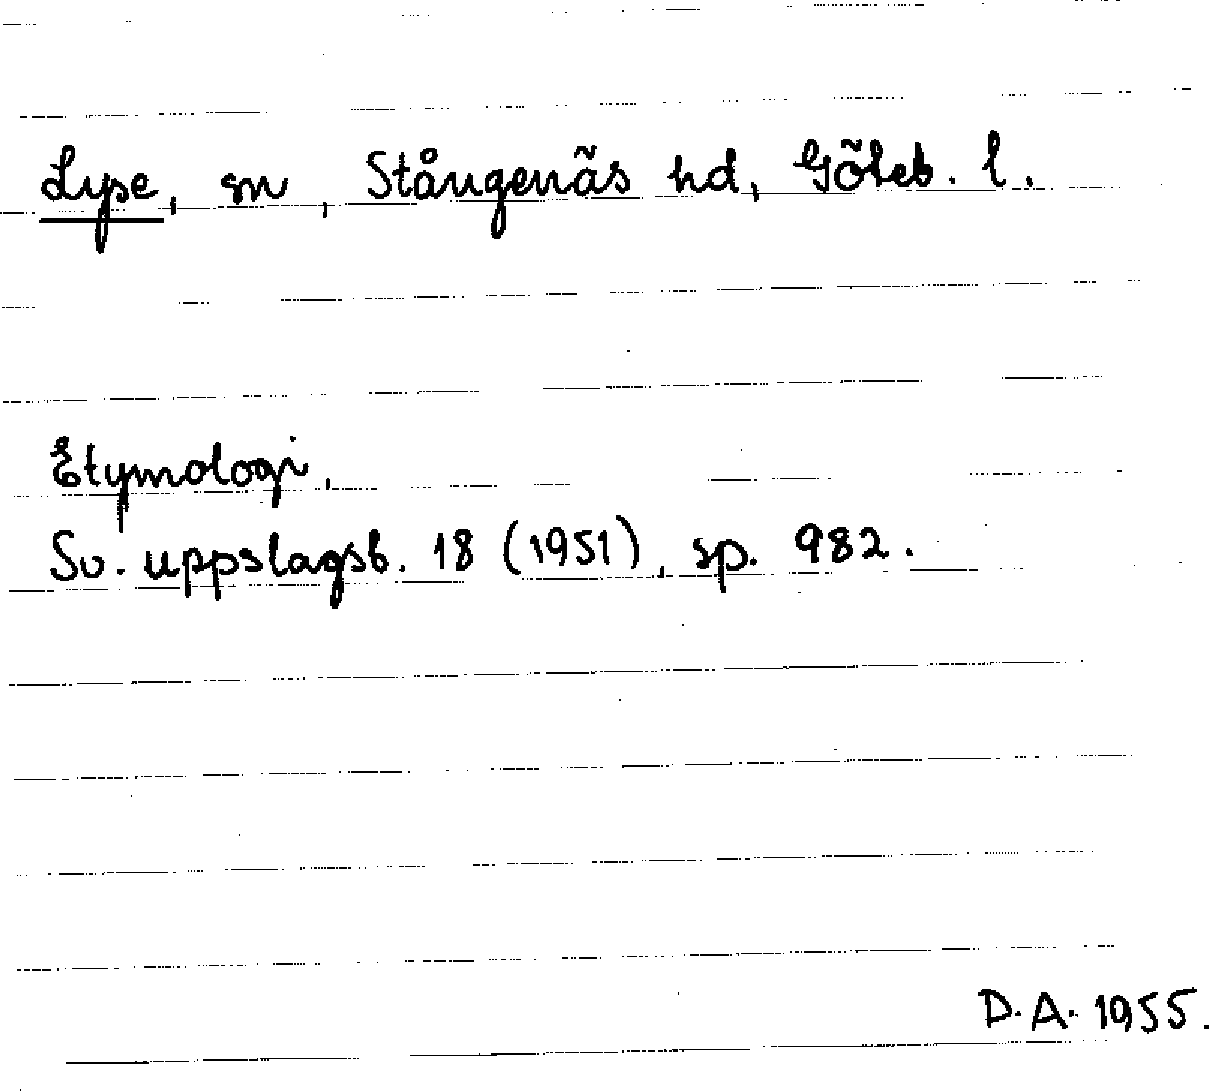 Lyse, sn, Stångenäs hd, Göteb. l.
Etymologi.
Sv. uppslagsb. 18 (1951), sp. 982.
D.A. 1955.